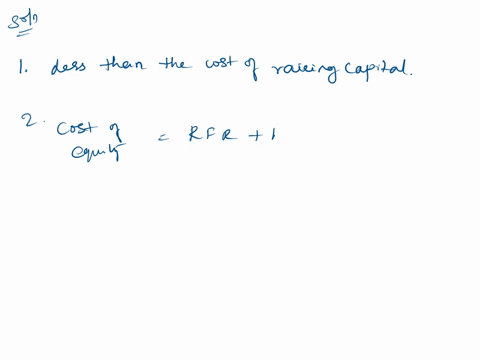 Soln
1. Less than the cost of raising capital.
2. Cost of equity = RFR +